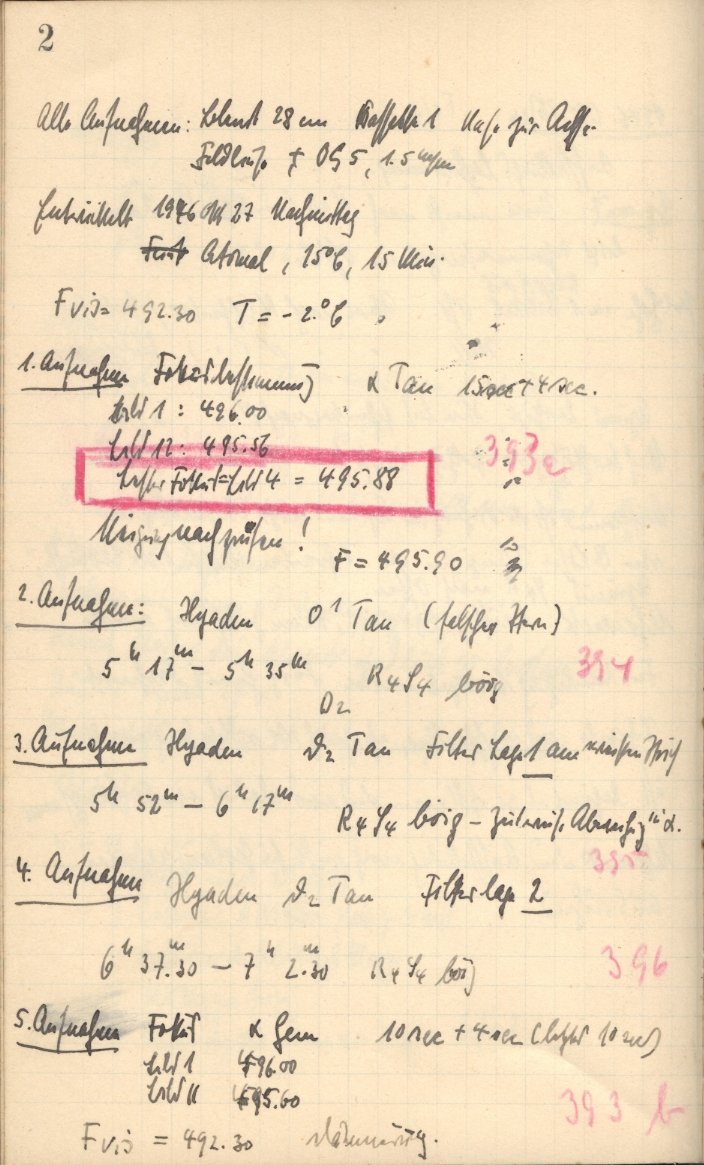 2
Alle Aufnahmen: Blende 28 cm Kassette 1
Feldlinse + OG 5, 1.5 mm
Entwickelt 1946 Okt 27 Nachmittag
Atomal, 15°C, 15 Min.
F vis = 492.30 T = -2.°C
1. Aufnahme Fokusbestimmung α Tau 15sec + 4sec.
Bild 1: 496.00
Bild 12: 495.56
393a
bester Fokus = Bild 4 = 495.88
Neigung nachprüfen!
F = 495.90
2. Aufnahme: Hyaden Θ1 Tau (falscher Stern)
5h 17m – 5h 35m R4S4 böig
394
3. Aufnahme Hyaden ϑ2 Tau Filter Lage 1 am
5h 52m – 6h 17m
R4S4 böig –
395
4. Aufnahme Hyaden ϑ2 Tau Filterlage 2
6h 37m.30 – 7h 2m.30 R4S4 böig
396
5. Aufnahme Fokus α Gem 10sec + 4sec (letztes 10sec)
Bild 1 496.00
Bild 11 495.60
393 b
F vis = 492.30 Dämmerung.